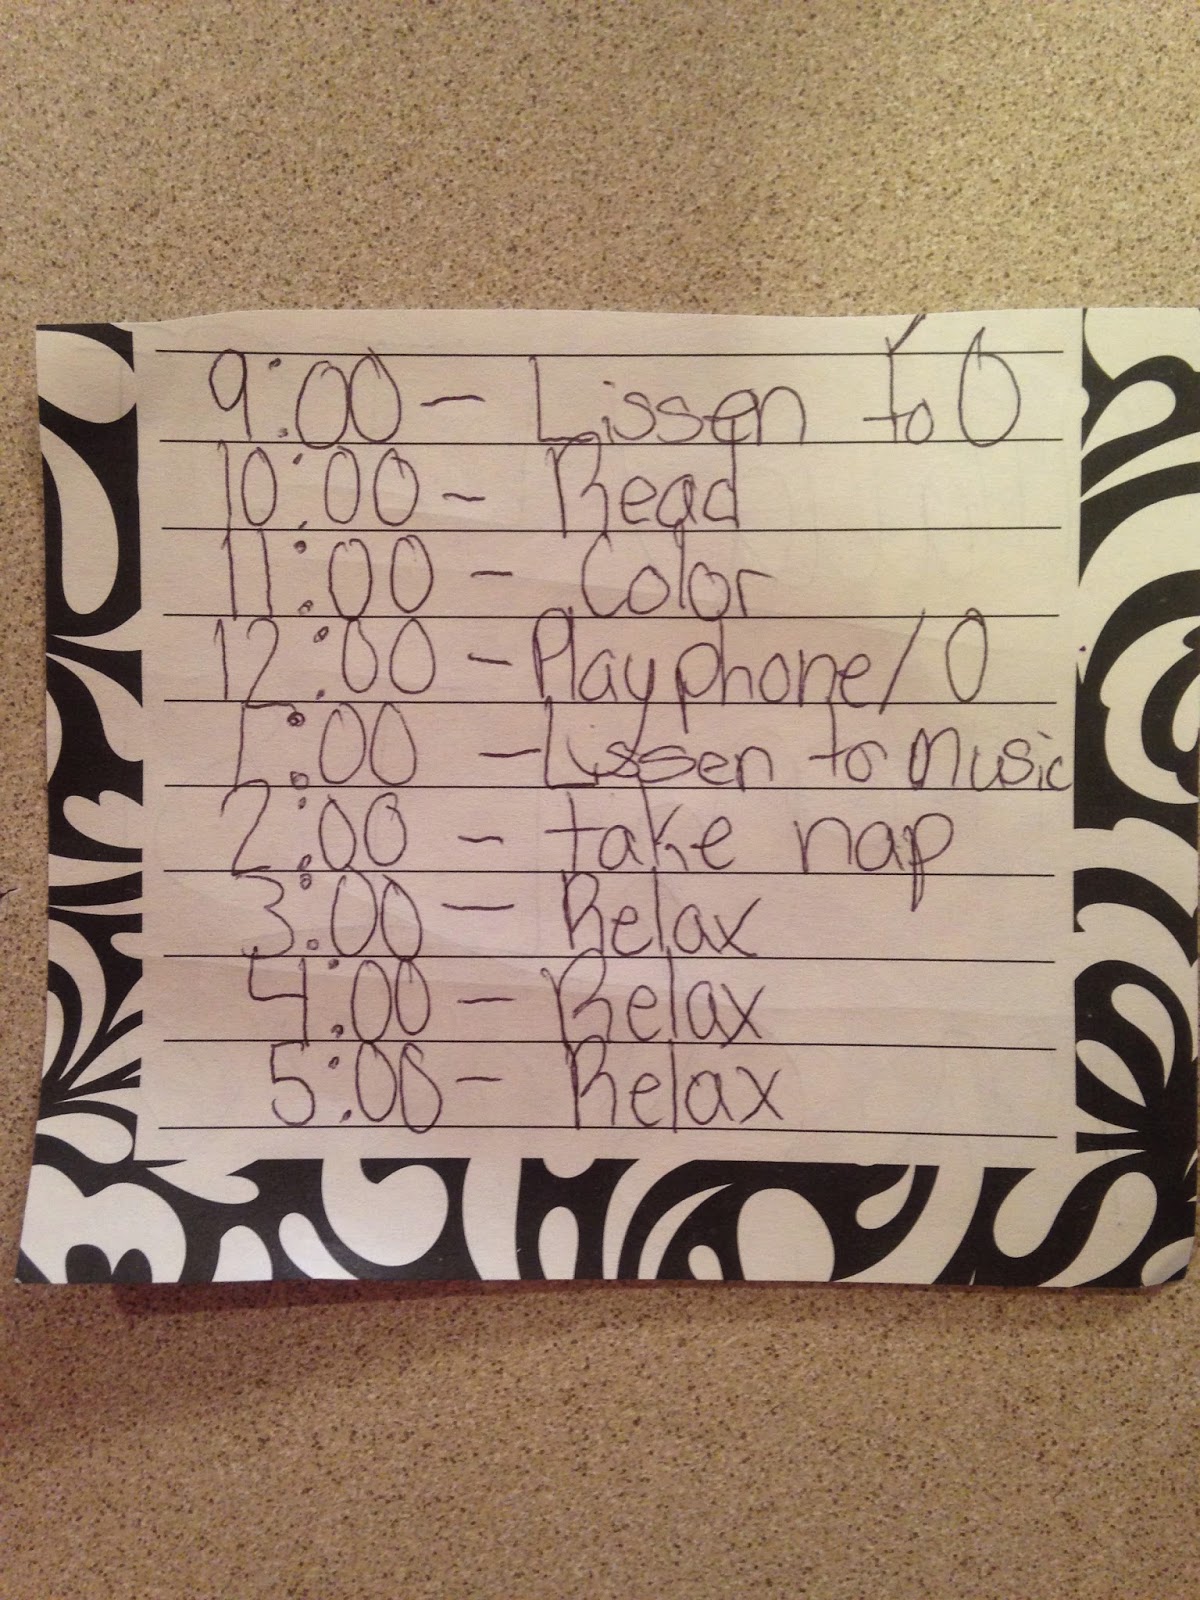 9:00 - Lissen to O
10:00 - Read
11:00 - Color
12:00 - Play phone/ O
1:00 - Lissen to Music
2:00 - take nap
3:00 - Relax
4:00 - Relax
5:00 - Relax